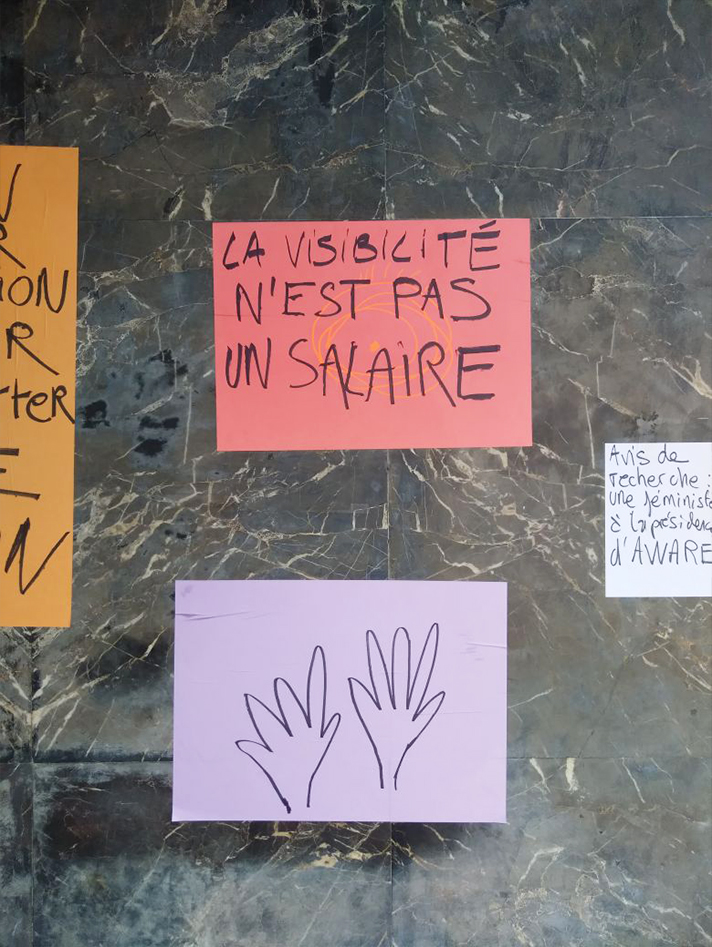 ION
R
rter
E
LA VISIBILITÉ
N'EST PAS
UN SALAIRE
Avis de
recherche :
une féministe
à la présidence
d'AWARE